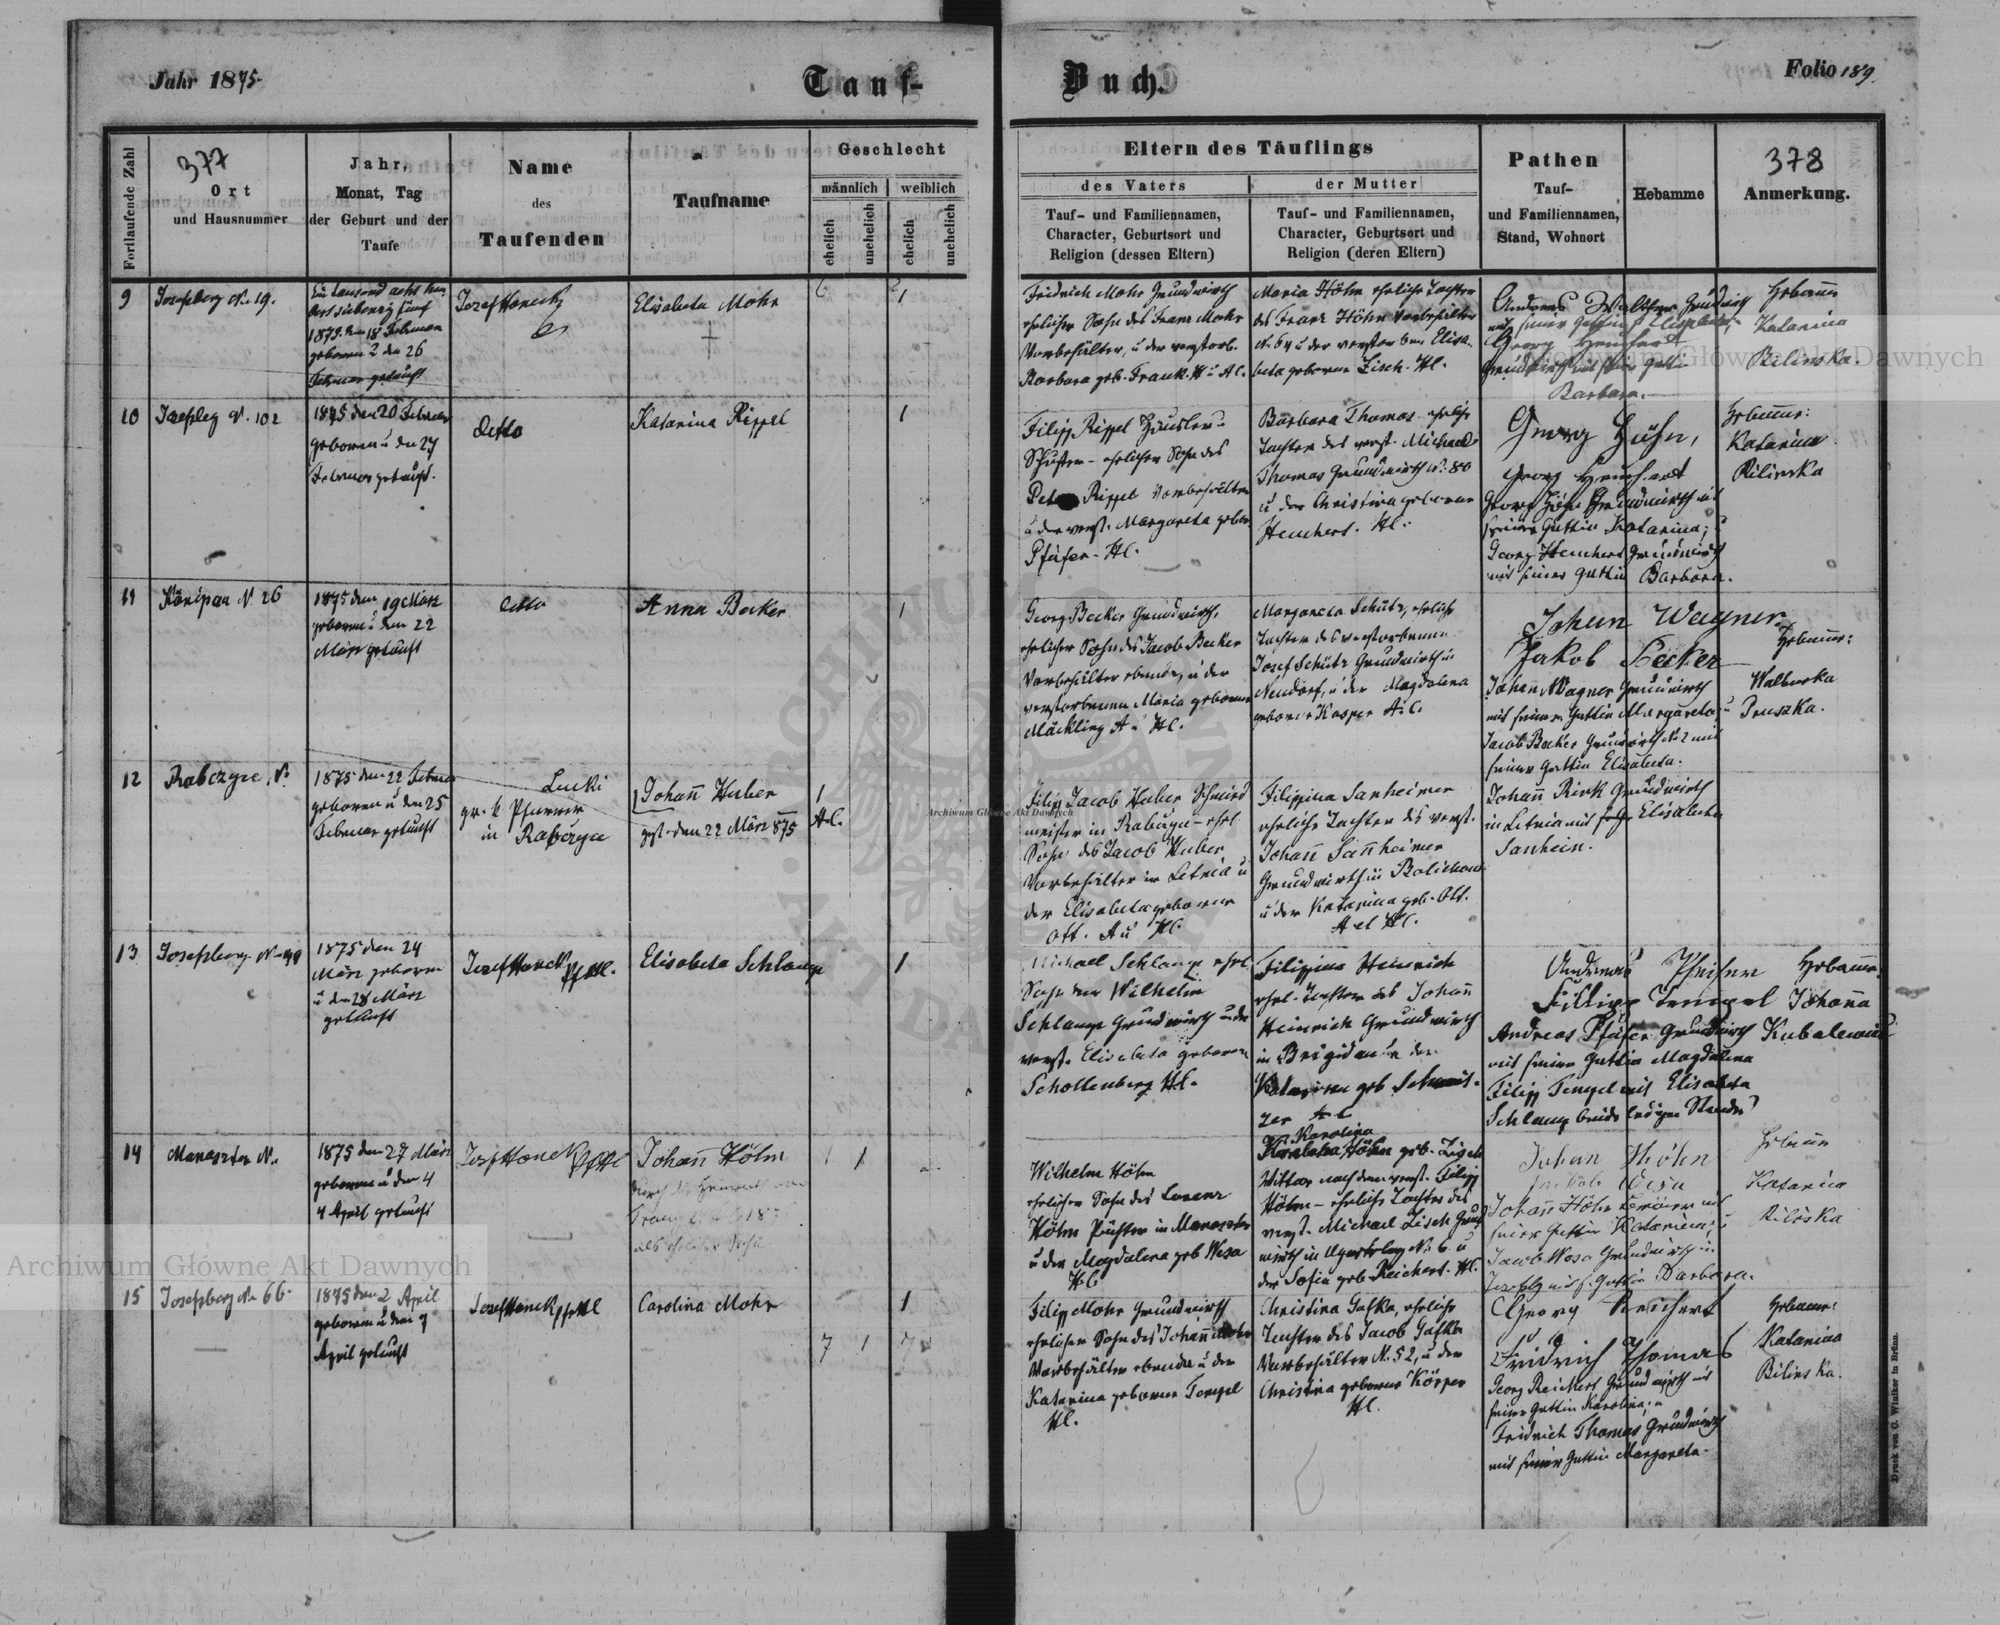 Jahr 1875.
Tauf-
Buch.
Folio 189.
377
378
Fortlaufende Zahl
Ort
und Hausnummer
Jahr,
Monat, Tag
der Geburt und der
Taufe
Name
des
Taufenden
Taufname
Geschlecht
männlich
weiblich
ehelich
unehelich
ehelich
unehelich
Eltern des Täuflings
des Vaters
der Mutter
Tauf- und Familiennamen,
Character, Geburtsort und
Religion (dessen Eltern)
Tauf- und Familiennamen,
Character, Geburtsort und
Religion (deren Eltern)
Pathen
Tauf-
und Familiennamen,
Stand, Wohnort
Hebamme
Anmerkung.
9
Josefsberg N. 19.
Ein tausend acht hun
dert siebenzig fünf
1875 den 18 Februar
geboren u den 26
Februar getauft
Josef Honeck
Elisabeta Mohr
1
Fridrich Mohr Grundwirth
ehelicher Sohn des Franz Mohr
Vorbehälter, u der verstorb.
Barbara geb. Frank. H u A.C.
Maria Höhn eheliche Tochter
des Franz Höhn Vorbehälter
N. 64 u der verstorbenen Elisa-
beta geborene Lisch. H.C.
Andreas Walther Grundwirth
mit seiner Gattin Elisabeta,
Georg Henhardt
Grundwirth mit seiner Gattin
Barbara.
Hebamme
Katarina
Bilinska.
10
N. 102
1875 den 20 Februar
geboren u den 27
Februar getauft.
detto
Katarina Rippel
1
Filipp Rippel Häusler u
Schuster - ehelicher Sohn des
Peter Rippel Vorbehälter
u der verst. Margareta gebor.
Pfeifer - H.C.
Barbara Thomas eheliche
Tochter des verst. Michael
Thomas Grundwirth N. 80
u der Christina geborene
Henhert. H.C.
Georg Höhn,
Georg Henhardt
Georg Höhn Grundwirth mit
seiner Gattin Katarina; u
Georg Henhert Grundwirth
mit seiner Gattin Barbara.
Hebamme:
Katarina
Bilinska
11
Könipau N. 26
1875 den 19 März
geboren u den 22
März getauft
detto
Anna Becker
1
Georg Becker Grundwirth,
ehelicher Sohn des Jacob Becker
Vorbehälter ebenda, u der
verstorbenen Maria geborene
Mäckling A u H.C.
Margareta Schütz, eheliche
Tochter des verstorbenen
Josef Schütz Grundwirth in
Neudorf, u der Magdalena
geborne Kasper A.C.
Johan Wagner
Jakob Becker
Johan Wagner Grundwirth
mit seiner Gattin Margareta, u
Jacob Becker Grundwirth N. 2 mit
seiner Gattin Elisabeta.
Hebamme:
Walburka
Pruszka.
12
Rabczyce, N.
1875 den 22 Februar
geboren u den 25
Februar getauft
Lucki
gr. k Pfarrer
in Rabczyce
Johann Huber
gest. den 22 März 875
1
H.C.
Filipp Jacob Huber Schmied
meister in Rabczyce - ehel
Sohn des Jacob Huber
Vorbehälter in Letnia u
der Elisabeta geborene
Ott. A u H.C.
Filippina Sanheimer
eheliche Tochter des verst.
Johann Sannheimer
Grundwirth in Bolichow
u der Katarina geb. Ott.
A et H.C.
Johann Rink Grundwirth
in Letnia mit Elisabeta
Sanhein.
13
Josefsberg N. 49
1875 den 24
März geboren
u den 28 März
getauft
Josef Honeck
Elisabeta Schlange
1
Michael Schlange ehel.
Sohn des Wilhelm
Schlange Grundwirth u der
verst. Elisabeta geborene
Schollenberg H.C.
Filippina Heinrich
ehel. Tochter des Johann
Heinrich Grundwirth
in Brigidau u der
Katarina geb. Schweit-
zer A.C.
Andreas Pfeifer
Filipp Tempel
Andreas Pfeifer Grundwirth
mit seiner Gattin Magdalena
Filipp Tempel mit Elisabeta
Schlange beide ledigen Standes
Hebamme
Johanna
14
Manaszter N.
1875 den 27 März
geboren u den 4
4 April getauft
Josef Honeck
Johann Höhn
1
Wilhelm Höhn
ehelicher Sohn des Lorenz
Höhn Pächter in Manaszter
u der Magdalena geb Wesa
H.C.
Karolina
Höhn geb. Lisch
Witwe nach dem verst. Filipp
Höhn - eheliche Tochter des
verst. Michael Lisch Grund
wirth in Ugartsberg N. 6 u
der Sofia geb Reichert. H.C.
Johan Höhn
Jakob Wesa
seiner Gattin Katarina; u
Jacob Wesa Grundwirth in
Gattin Barbara.
Hebamme
Katarina
Bilinska
15
Josefsberg N. 66.
1875 den 2 April
geboren u den 9
April getauft
Josef Honeck
Carolina Mohr
1
7 1 7
Filipp Mohr Grundwirth
ehelicher Sohn des Johann Mohr
Vorbehälter ebenda u der
Katarina geborene Tempel
H.C.
Christina Gafka, eheliche
Tochter des Jacob Gafka
Vorbehälter N. 52, u der
Christina geborene Körper
H.C.
Georg Reichert
Fridrich Thomas
Georg Reichert Grundwirth mit
seiner Gattin Karolina; u
Fridrich Thomas Grundwirth
mit seiner Gattin Margareta.
Hebamme:
Katarina
Bilinska.
Druck von C. Winiker in Brünn.
Archiwum Główne Akt Dawnych
Archiwum Główne Akt Dawnych
Archiwum Główne Akt Dawnych